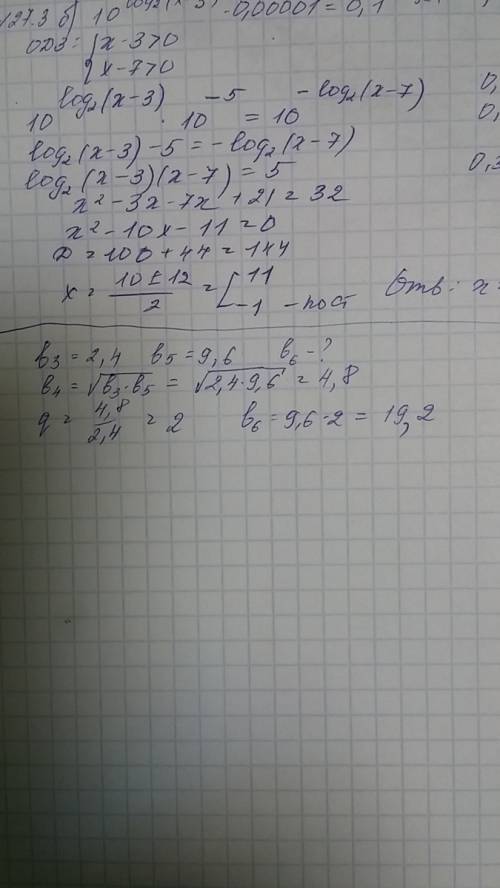 127.3 б) 10 log₂(x-3) · 0,00001 = 0,1
ОДЗ: { x-3>0
x-7>0
10^(log₂(x-3)) · 10^(-5) = 10^(-log₂(x-7))
log₂(x-3) - 5 = -log₂(x-7)
log₂(x-3)(x-7) = 5
x² - 3x - 7x + 21 = 32
x² - 10x - 11 = 0
D = 100 + 44 = 144
x = (10 ± 12)/2 = [ 11
-1 - пост
Отв: x =
0,
0,
0,3
b₃ = 2,4 b₅ = 9,6 b₆ - ?
b₄ = √(b₃·b₅) = √(2,4·9,6) = 4,8
q = 4,8/2,4 = 2 b₆ = 9,6·2 = 19,2